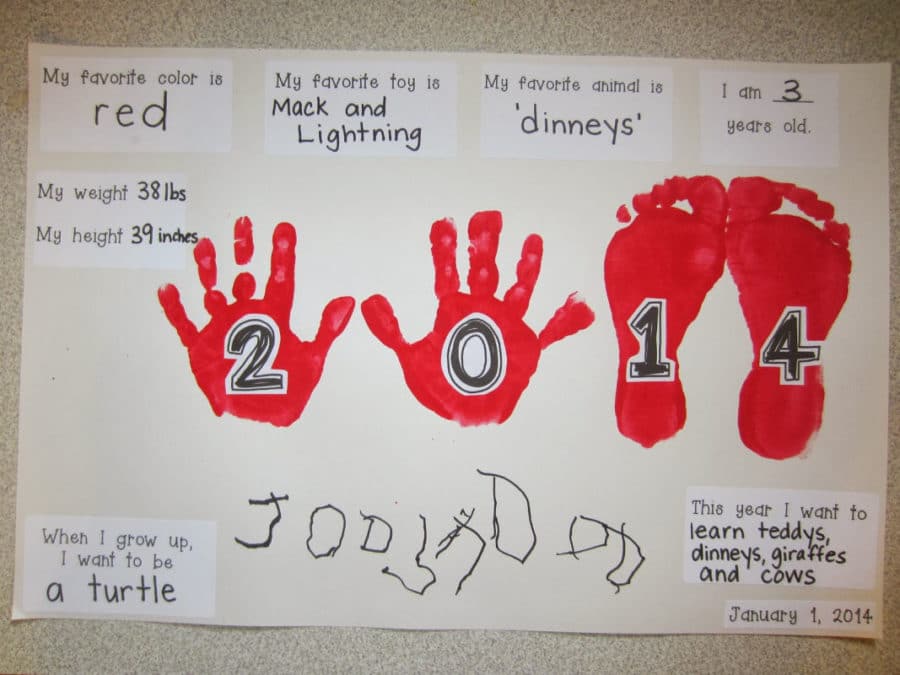 My favorite color is
red
My favorite toy is
Mack and
Lightning
My favorite animal is
'dinneys'
I am 3
years old.
My weight 38 lbs
My height 39 inches
2 0 1 4
When I grow up,
I want to be
a turtle
This year I want to
learn teddys,
dinneys, giraffes
and cows
January 1, 2014